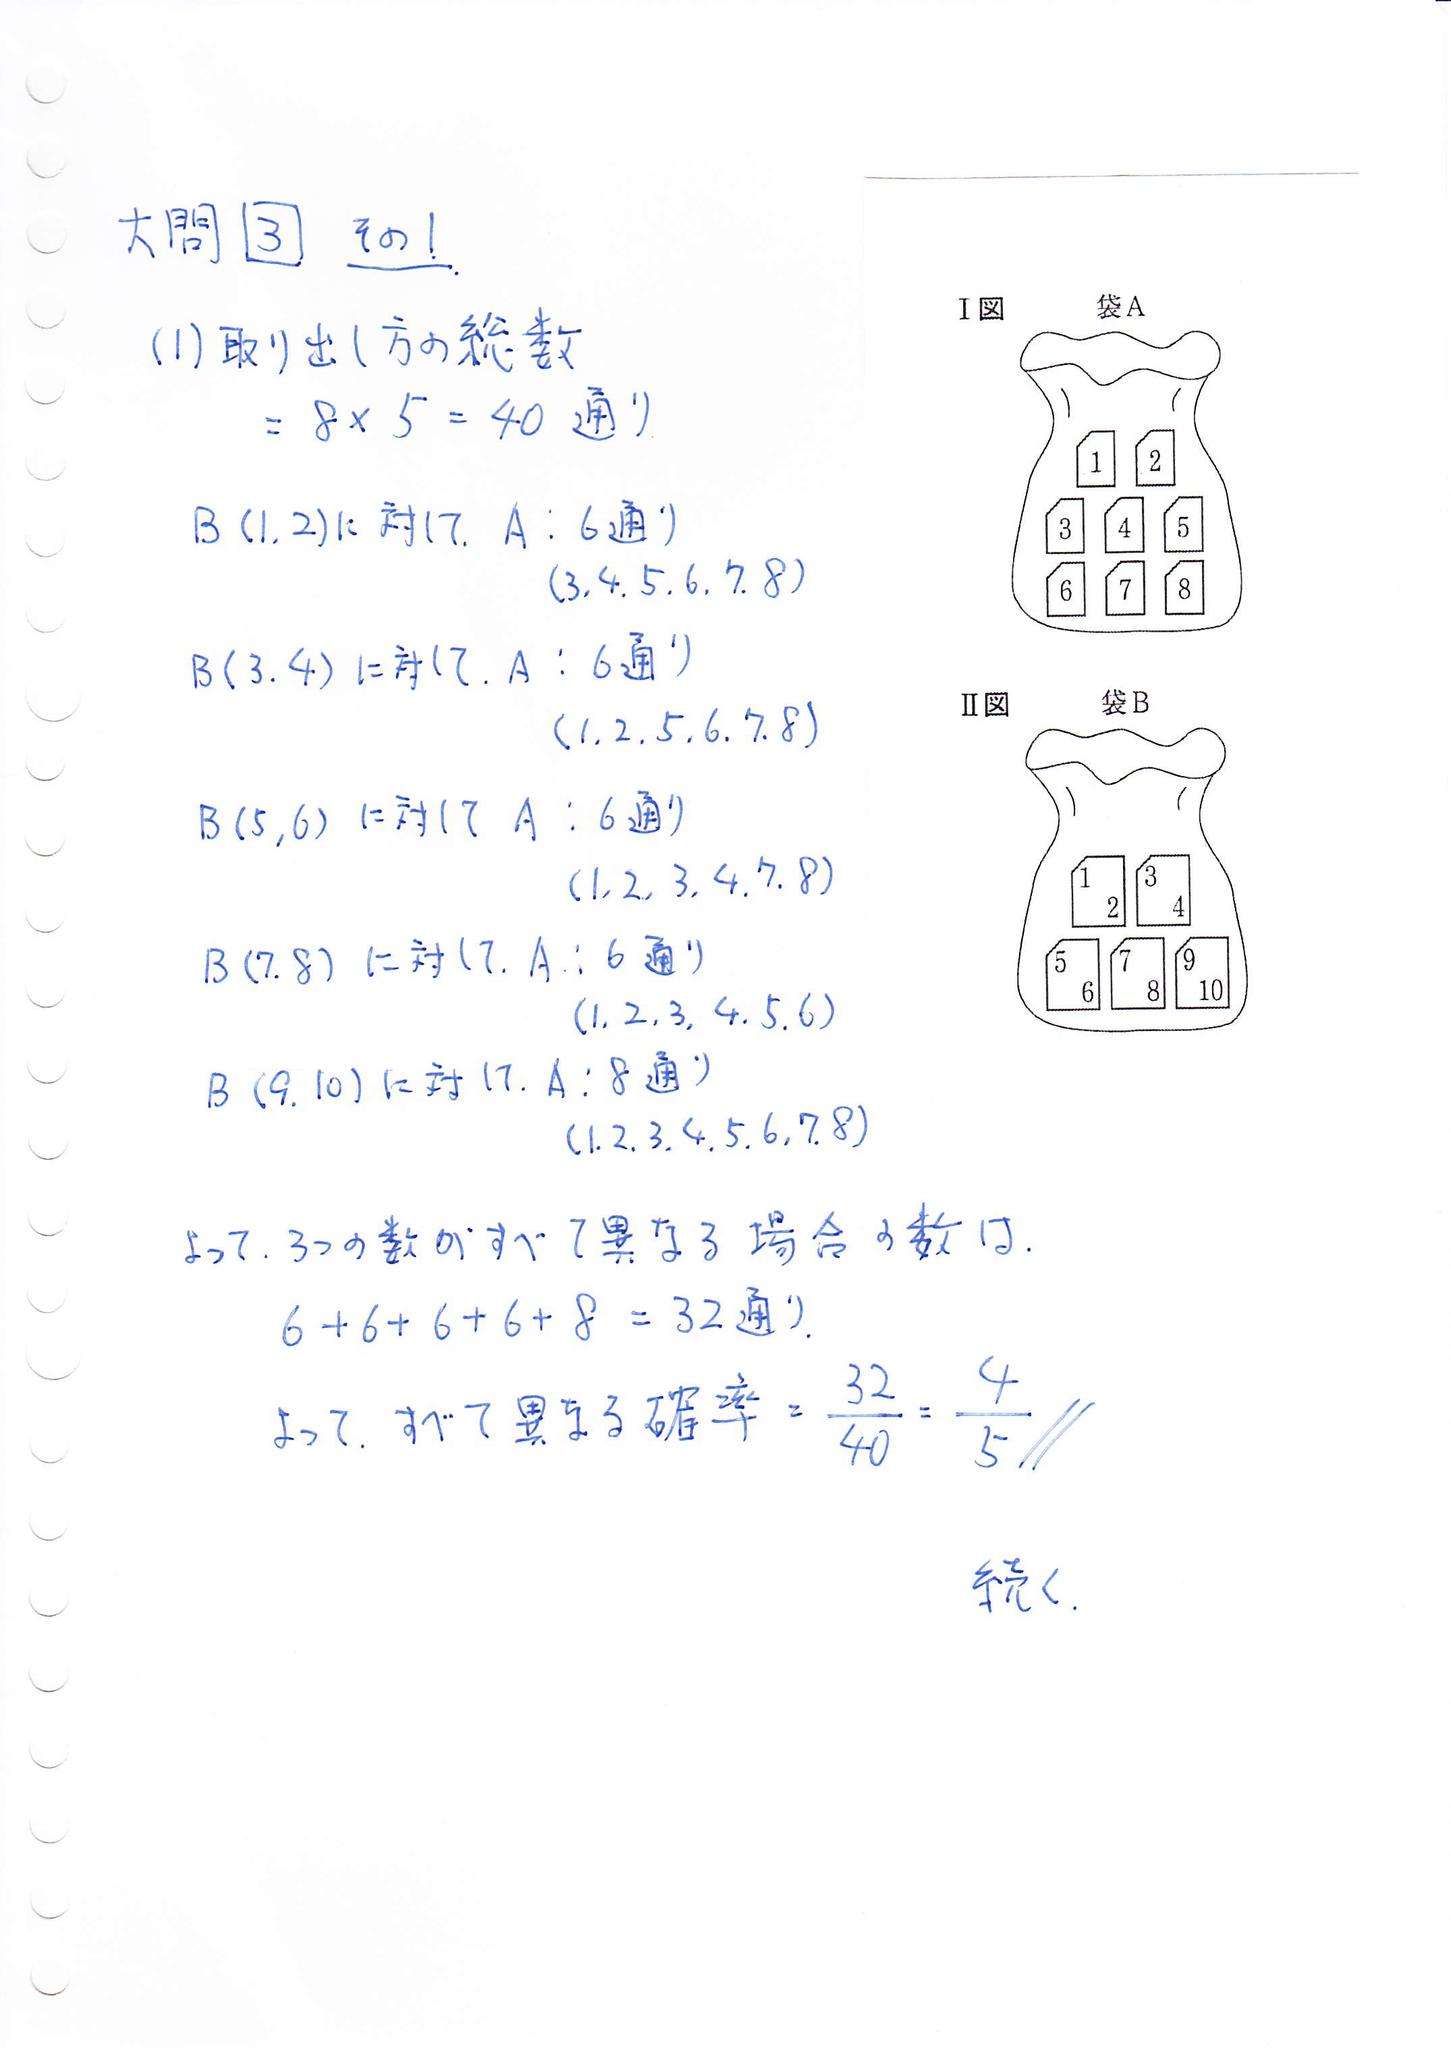 大問 3 その1.
(1) 取り出し方の総数
= 8 × 5 = 40 通り
B (1, 2) に対して. A : 6通り
(3. 4. 5. 6. 7. 8)
B (3. 4) に対して. A : 6通り
(1. 2. 5. 6. 7. 8)
B (5, 6) に対して A : 6通り
(1, 2, 3, 4. 7. 8)
B (7. 8) に対して. A : 6通り
(1. 2. 3, 4. 5. 6)
B (9. 10) に対して. A : 8通り
(1. 2. 3. 4. 5. 6, 7. 8)
よって. 3つの数がすべて異なる場合の数は.
6 + 6 + 6 + 6 + 8 = 32 通り.
よって. すべて異なる確率 = 32/40 = 4/5
続く.
I図 袋A
1 2
3 4 5
6 7 8
II図 袋B
1 2 3 4
5 6 7 8 9 10